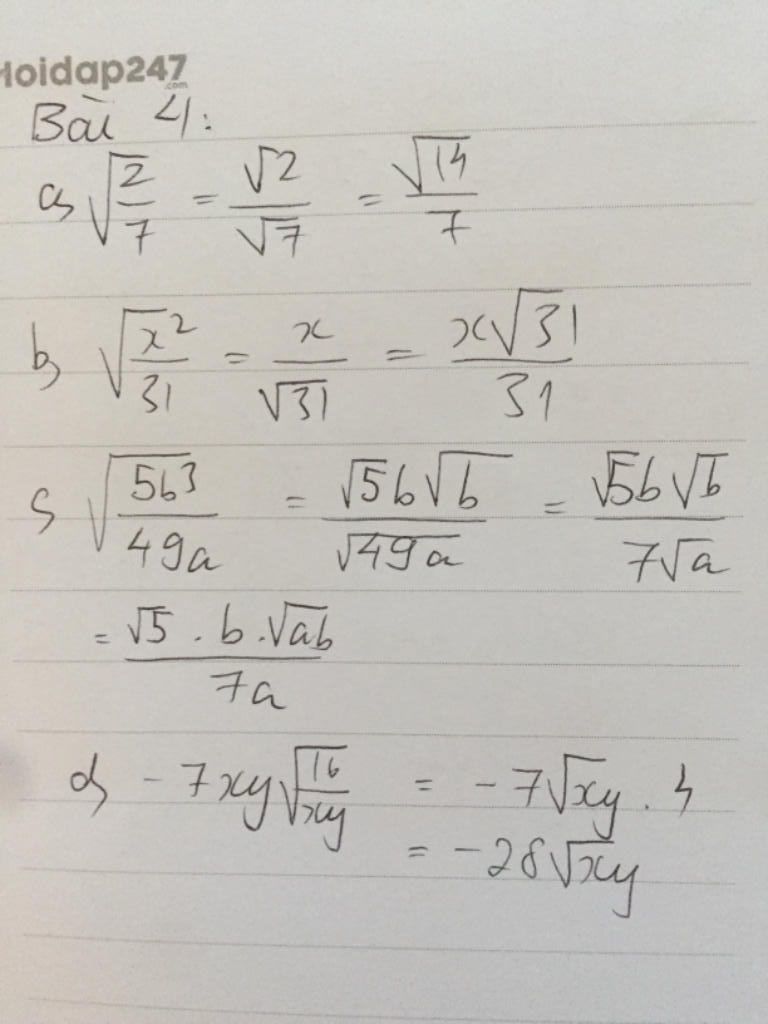 Hoidap247
.com
Bài 4:
a, √(2/7) = √2/√7 = √14/7
b, √(x²/31) = x/√31 = x√31/31
c, √(5b³/49a) = √5b√b/√49a = √5b√b/7√a
= √5 . b . √ab/7a
d, - 7xy√(16/xy) = - 7√xy . 4
= - 28√xy